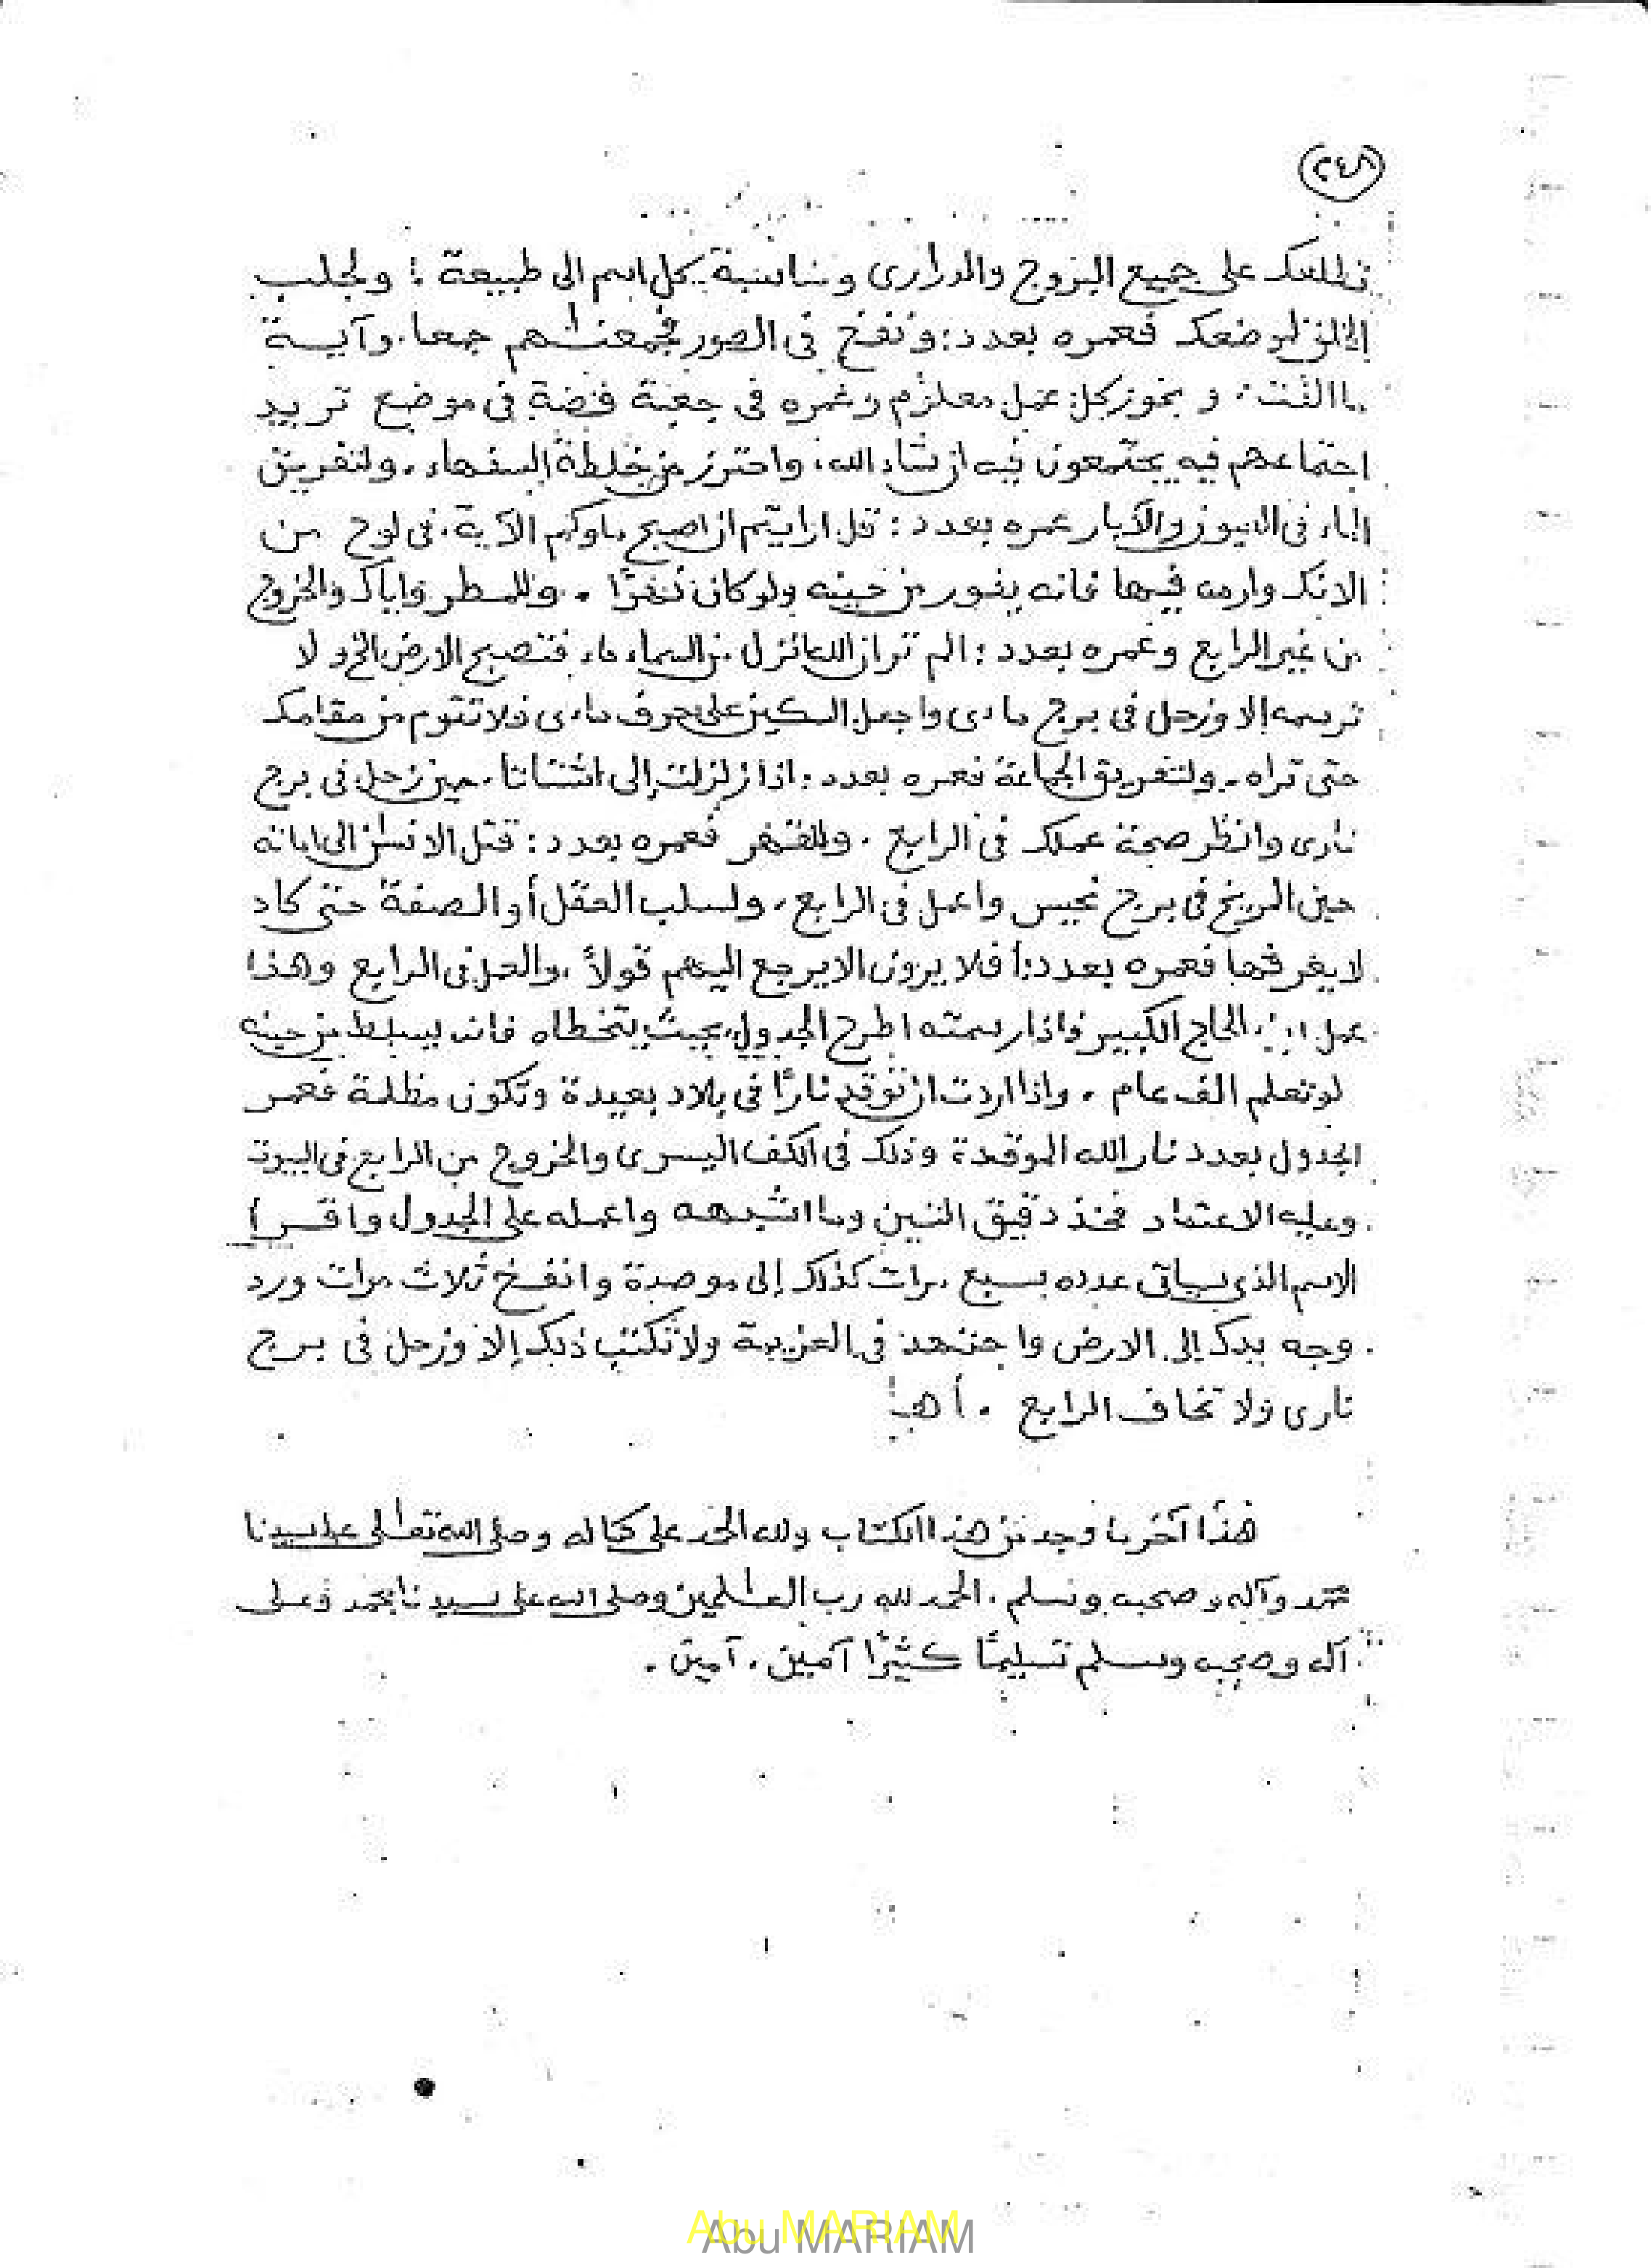 (٢٤٨)
تطلعك على جميع البروج والدرارى ومناسبة كل اسم الى طبيعة : ولجلب
الخلق لموضعك فعمره بعدد : ونفخ فى الصور فجمعنٰهم جمعا . وآية
ما الفت . و بخور كل عمل معلزم وغمره فى جعبة فضة فى موضع تريد
اجتماعهم فيه يجتمعون فيه ان شاء الله ، واحترز من خلطة السفهاء . ولتفريق
الماء فى العيون والآبار عمره بعدد : قل ارايتم ان اصبح ماوكم الآية ، فى لوح من
الانك وارمه فيها فانه يغور من حينه ولو كان نهرًا . وللمطر واياك والخروج
من غير الرابع وعمره بعدد : الم تر ان الله انزل من السماء ماء فتصبح الارض الخ ولا
ترسمه إلا وزحل فى برج مائى واجعل السكين على حرف مائى فلا تقوم من مقامك
حتى تراه . ولتفريق الجماعة فعمره بعدد : اذا زلزلت إلى اشتاتا . حين زحل فى برج
نارى وانظر صحة عملك فى الرابع . وللقهر فعمره بعدد : قتل الانسٰن الى اماته
حين المريخ فى برج نحيس واعمل فى الرابع ، ولسلب العقل أو الصنعة حتى كاد
لا يعرفها فعمره بعدد : أفلا يرون الا يرجع اليهم قولاً ، والعمل فى الرابع وهذا
عمل الحاج الكبير فاذا رسمته اطرح الجدول بحيث يتخطاه فانه يسلط من حينه
لو تعلم الف عام . واذا اردت ان توقد نارًا فى بلاد بعيدة وتكون مظلمة فعمر
الجدول بعدد نار الله الموقدة وذلك فى الكف اليسرى والخروج من الرابع فى البيوت
وعليه الاعتماد فخذ دقيق التبن وما اشبهه واعمله على الجدول واقرا
الاسم الذى سياتى عدده بسبع مرات كذلك إلى موصدة وانفخ ثلاث مرات ورد
وجه يدك إلى الارض واجتهد فى العزيمة ولا تكتب ذلك إلا وزحل فى برج
نارى ولا تخاف الرابع . أ هـ
هذا آخر ما وجد من هذا الكتاب ولله الحمد على كماله وصلى الله تعٰلى على سيدنا
محمد وآله وصحبه وسلم . الحمد لله رب العٰلمين وصلى الله على سيدنا محمد وعلى
آله وصحبه وسلم تسليمًا كثيرًا آمين . آمين .
Abu MARIAM
Abu MARIAM